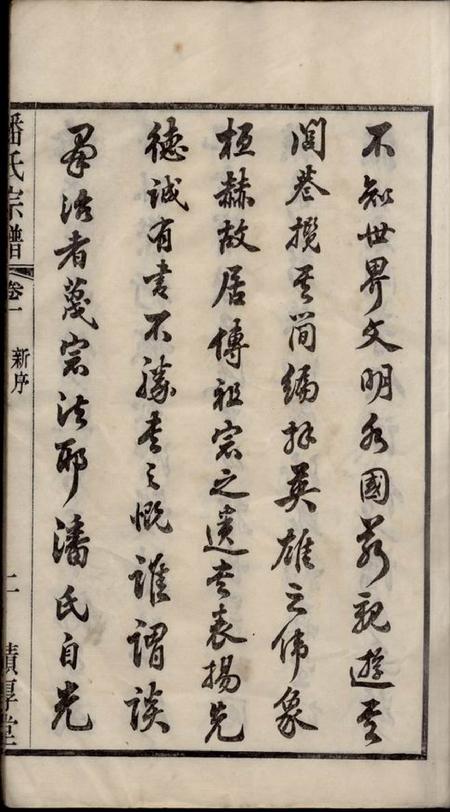 不知世界文明各國若親遊其
閭巷攬其簡編拜英雄之偉象
桓赫故居傳祖宗之遺書表揚先
德誠有書不勝書之慨誰謂談
群治者蔑宗法耶潘氏自光
潘氏宗譜 卷一 新序 二 積厚堂